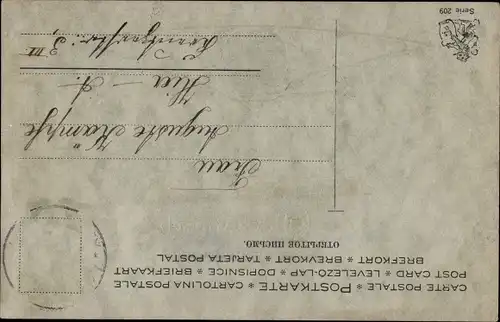 CARTE POSTALE * POSTKARTE * CARTOLINA POSTALE
POST CARD * LEVELEZŐ-LAP * DOPISNICE * BRIEFKAART
BREFKORT * BREVKORT * TARJETA POSTAL
ОТКРЫТОЕ ПИСЬМО.
Frau
Auguste Kämpfe
Hier – A.
3, III
Serie 209